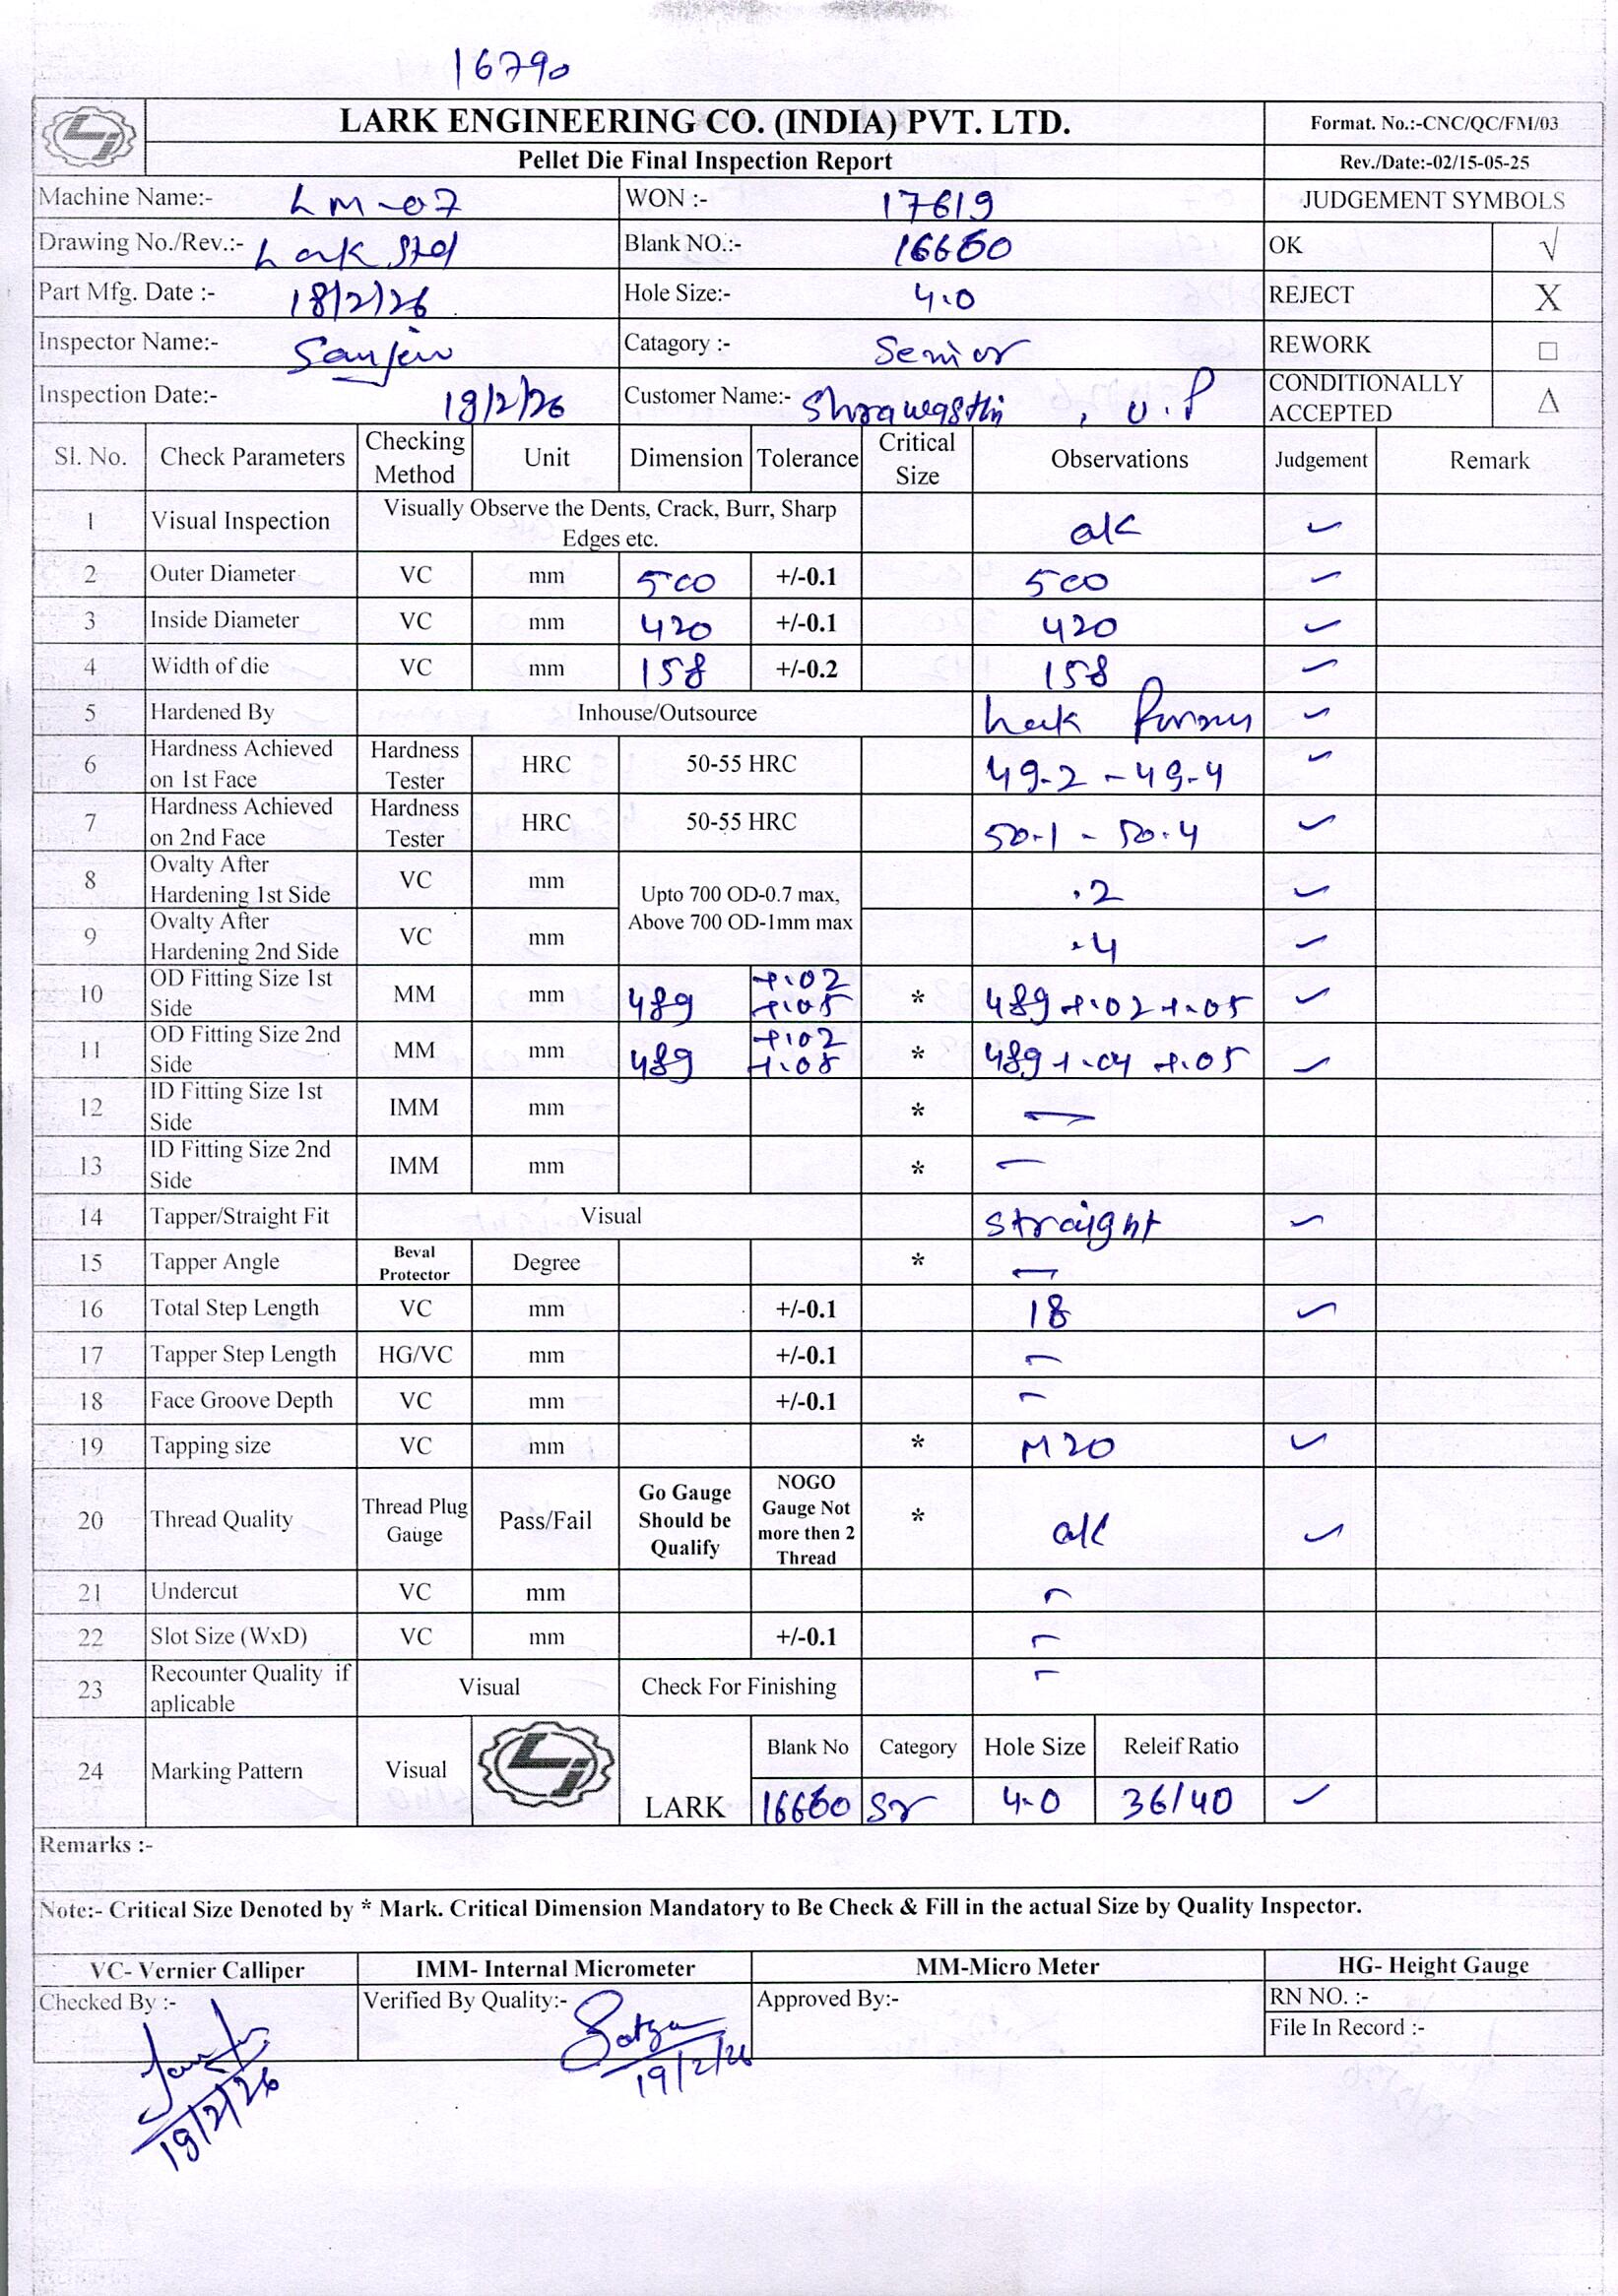 16790
LARK ENGINEERING CO. (INDIA) PVT. LTD. Format. No.:-CNC/QC/FM/03
Pellet Die Final Inspection Report Rev./Date:-02/15-05-25
Machine Name:- LM-07 WON :- 17619 JUDGEMENT SYMBOLS
Drawing No./Rev.:- Lark Std Blank NO.:- 16660 OK √
Part Mfg. Date :- 18/2/26 Hole Size:- 4.0 REJECT X
Inspector Name:- Sanjeev Catagory :- Senior REWORK □
Inspection Date:- 19/2/26 Customer Name:- Shrawasthi, U.P CONDITIONALLY ACCEPTED Δ
Sl. No. Check Parameters Checking Method Unit Dimension Tolerance Critical Size Observations Judgement Remark
1 Visual Inspection Visually Observe the Dents, Crack, Burr, Sharp Edges etc. ok ✓
2 Outer Diameter VC mm 500 +/-0.1 500 ✓
3 Inside Diameter VC mm 420 +/-0.1 420 ✓
4 Width of die VC mm 158 +/-0.2 158 ✓
5 Hardened By Inhouse/Outsource ✓
6 Hardness Achieved on 1st Face Hardness Tester HRC 50-55 HRC 49.2 - 49.4 ✓
7 Hardness Achieved on 2nd Face Hardness Tester HRC 50-55 HRC 50.1 - 50.4 ✓
8 Ovalty After Hardening 1st Side VC mm Upto 700 OD-0.7 max, Above 700 OD-1mm max .2 ✓
9 Ovalty After Hardening 2nd Side VC mm .4 ✓
10 OD Fitting Size 1st Side MM mm 489 +.02 +.05 * 489 +.02 +.05 ✓
11 OD Fitting Size 2nd Side MM mm 489 +.02 +.05 * 489 +.04 +.05 ✓
12 ID Fitting Size 1st Side IMM mm * —
13 ID Fitting Size 2nd Side IMM mm * —
14 Tapper/Straight Fit Visual Straight ✓
15 Tapper Angle Beval Protector Degree * —
16 Total Step Length VC mm +/-0.1 18 ✓
17 Tapper Step Length HG/VC mm +/-0.1 —
18 Face Groove Depth VC mm +/-0.1 —
19 Tapping size VC mm * M20 ✓
20 Thread Quality Thread Plug Gauge Pass/Fail Go Gauge Should be Qualify NOGO Gauge Not more then 2 Thread * ok ✓
21 Undercut VC mm —
22 Slot Size (WxD) VC mm +/-0.1 —
23 Recounter Quality if aplicable Visual Check For Finishing —
24 Marking Pattern Visual LARK Blank No Category Hole Size Releif Ratio
16660 Sr 4.0 36/40 ✓
Remarks :-
Note:- Critical Size Denoted by * Mark. Critical Dimension Mandatory to Be Check & Fill in the actual Size by Quality Inspector.
VC- Vernier Calliper IMM- Internal Micrometer MM-Micro Meter HG- Height Gauge
Checked By :- Verified By Quality:- Approved By:- RN NO. :-
File In Record :-
19/2/26
19/2/26